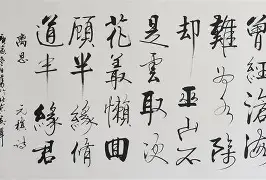 曾經滄海
難为水除
却巫山不
是雲取次
花叢懶回
顧半緣脩
道半緣君
离思 元稹詩